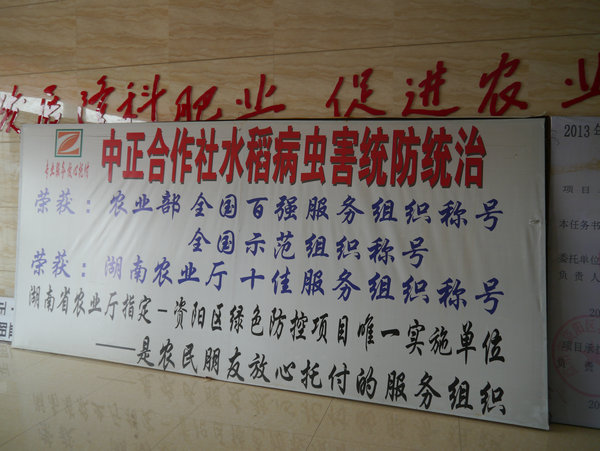 科肥业 促进农业
中正合作社水稻病虫害统防统治
专业服务 放心托付
荣获：农业部全国百强服务组织称号
全国示范组织称号
荣获：湖南农业厅十佳服务组织称号
湖南省农业厅指定-资阳区绿色防控项目唯一实施单位
——是农民朋友放心托付的服务组织
2013年
项目
本任务书
委托单位
负责人
项目承担
负责